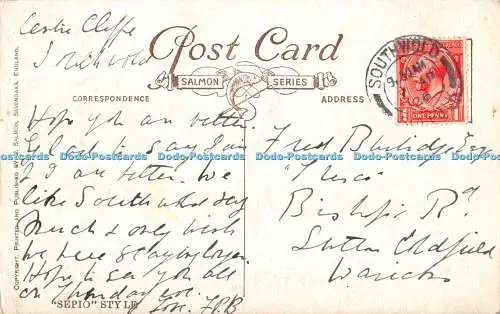 Post Card
SALMON SERIES
CORRESPONDENCE
ADDRESS
SOUTHWOLD
ONE PENNY
COPYRIGHT, PRINTED AND PUBLISHED BY J. SALMON, SEVENOAKS, ENGLAND.
Cliffe
Southwold
Hope you are better.
Glad to say I am
& are better. We
like Southwold very
much & only wish
we were staying longer.
Hope to see you all
on Thursday eve.
Love. F.P.B
"SEPIO" STYLE
Fred Esq
Bishop Rd
Sutton Coldfield
Warwicks
Dodo-Postcards Dodo-Postcards Dodo-Postcards Dodo-Postcards Dodo-Postcards Dodo-Postcards